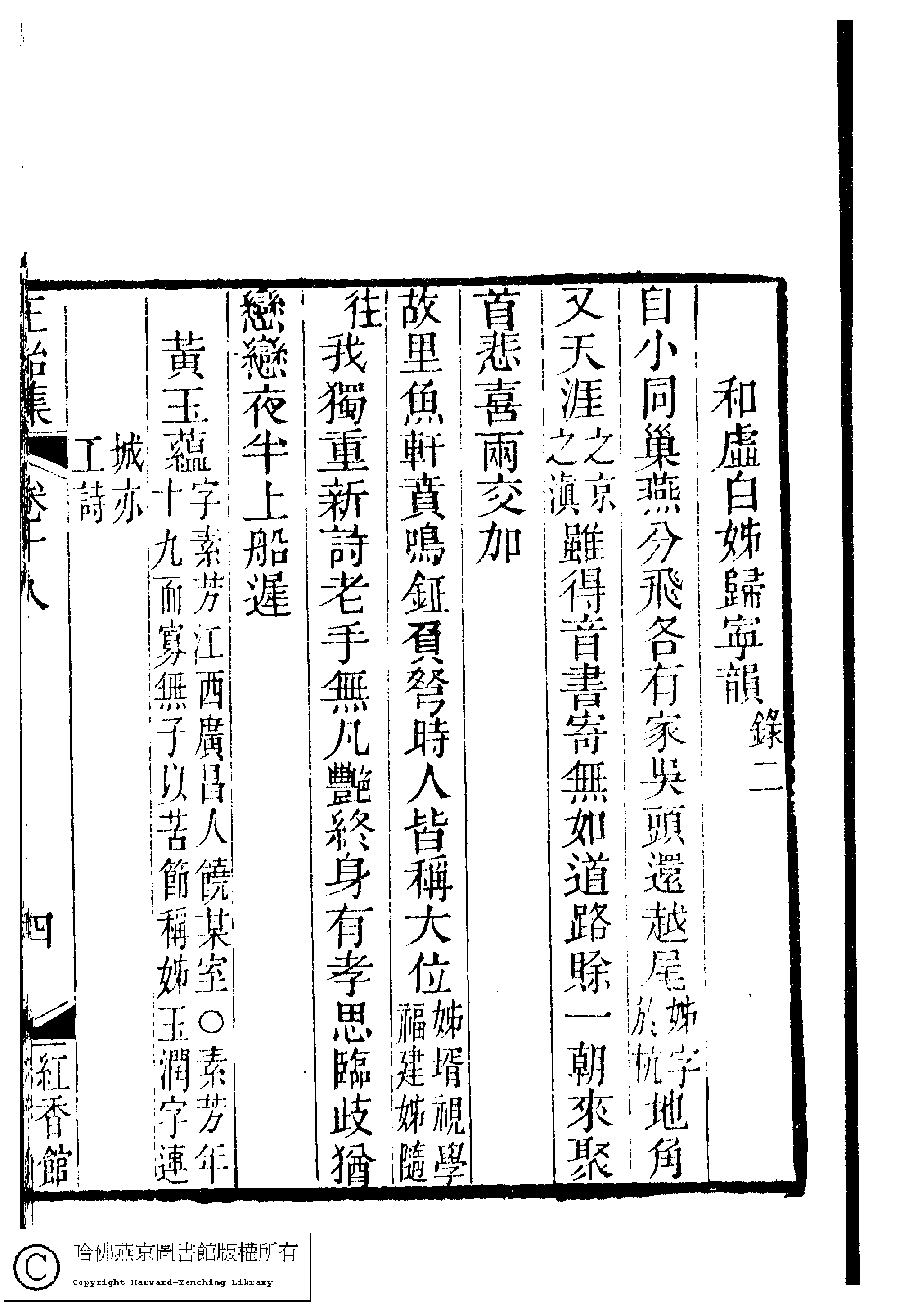 和虛白姊歸寧韻錄二
自小同巢燕分飛各有家吳頭還越尾姊字於杭地角
又天涯之京之滇雖得音書寄無如道路賖一朝來聚
首悲喜兩交加
故里魚軒賁鳴鉦負弩時人皆稱大位姊壻視學福建姊隨
往我獨重新詩老手無凡艷終身有孝思臨歧猶
戀戀夜半上船遲
黃玉蘊字素芳江西廣昌人饒某室○素芳年十九而寡無子以苦節稱姊玉潤字連
城亦工詩
正始集 卷十八 四 紅香館
哈佛燕京圖書館版權所有
Copyright Harvard-Yenching Library